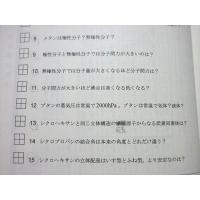 8 メタンは極性分子？無極性分子？
9 極性分子と無極性分子では分子間力が大きいのは？
10 無極性分子では分子量が大きくなるほど分子間力は？
11 分子間力が大きいほど沸点は高くなる低くなる？
12 ブタンの蒸気圧は常温で2000hPa。ブタンは常温で気体？液体？
13 シクロヘキサンと同じ立体構造の原子からなる炭素同素体は？
14 シクロプロパンの結合角は本来の角度とどれだけ違う？
15 シクロヘキサンの立体配座はいす型とふね型。より安定なのは？